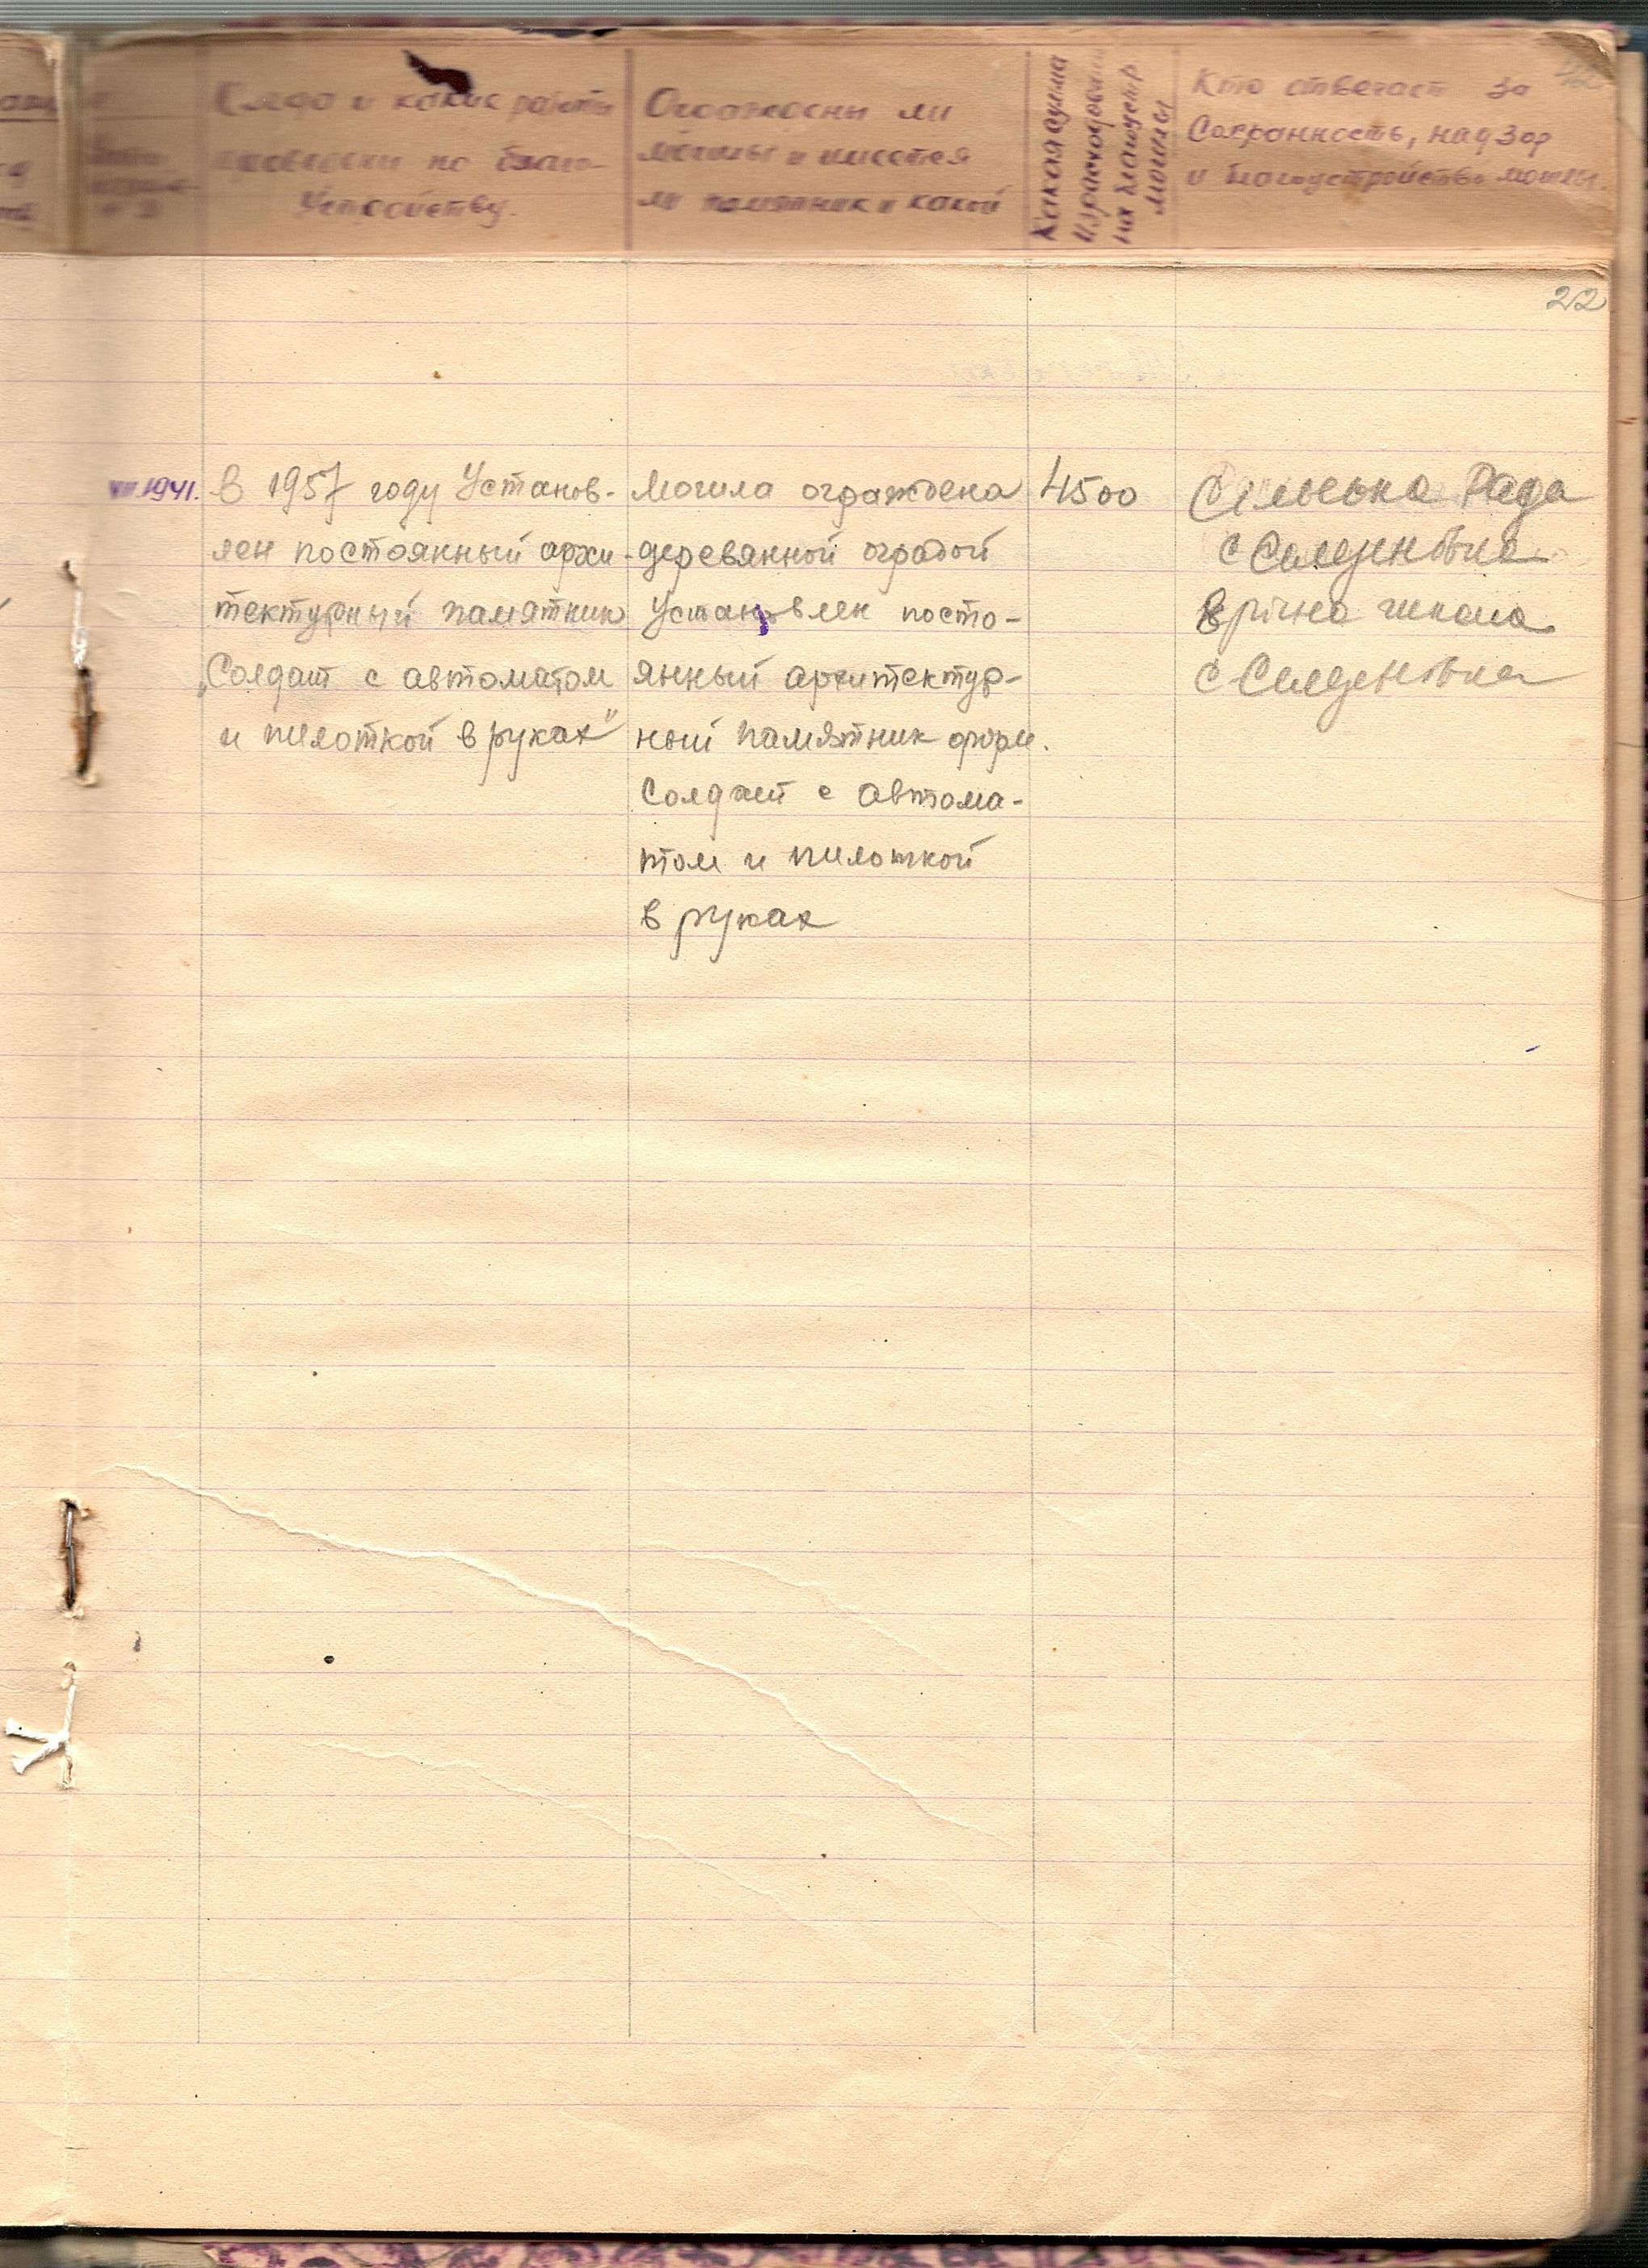 Когда и какие работы
проведены по благо-
устройству.
Ограждены ли
могилы и имеется
ли памятник и какой
Какая сумма
израсходована
на благоустр
могилы
Кто отвечает за
Сохранность, надзор
и благоустройство могилы.
22
VII.1941.
В 1957 году Установ-
лен постоянный архи-
тектурный памятник
„Солдат с автоматом
и пилоткой в руках"
Могила ограждена
деревянной оградой
Установлен посто-
янный архитектур-
ный памятник форм.
Солдат с автома-
том и пилоткой
в руках
4500
Сільська Рада
с
річна школа
с